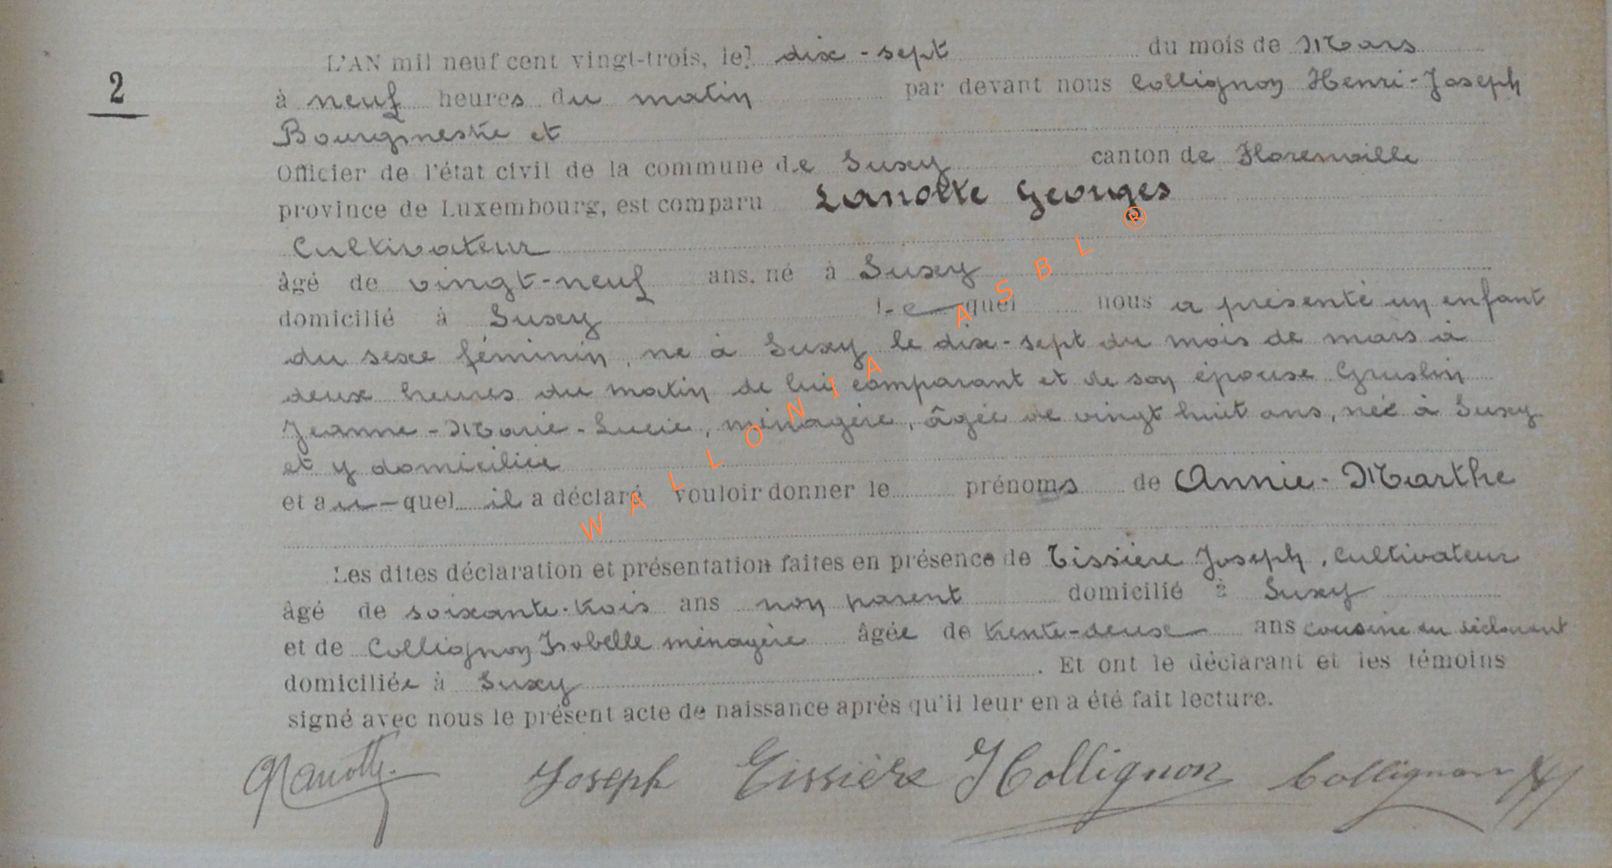 2
L'AN mil neuf cent vingt-trois, le dix-sept du mois de Mars
à neuf heures du matin par devant nous Collignon Henri-Joseph
Bourgmestre et
Officier de l'état civil de la commune de Suxy canton de Florenville
province de Luxembourg, est comparu Lanotte Georges
Cultivateur
âgé de vingt-neuf ans, né à Suxy
domicilié à Suxy Le quel nous a présenté un enfant
du sexe féminin, né à Suxy le dix-sept du mois de mars à
deux heures du matin de lui comparant et de son épouse Gruslin
Jeanne-Marie-Lucie, ménagère, âgée de vingt huit ans, née à Suxy
et y domiciliée
et au-quel il a déclaré vouloir donner le prénoms de Annie-Marthe
Les dites déclaration et présentation faites en présence de Tissière Joseph, cultivateur
âgé de soixante-trois ans non parent domicilié à Suxy
et de Collignon Isabelle ménagère âgée de trente-deux ans cousine du déclarant
domiciliée à Suxy. Et ont le déclarant et les témoins
signé avec nous le présent acte de naissance après qu'il leur en a été fait lecture.
GLanotte. Joseph Tissière I Collignon Collignon HJ
WALLONIA ASBL ®